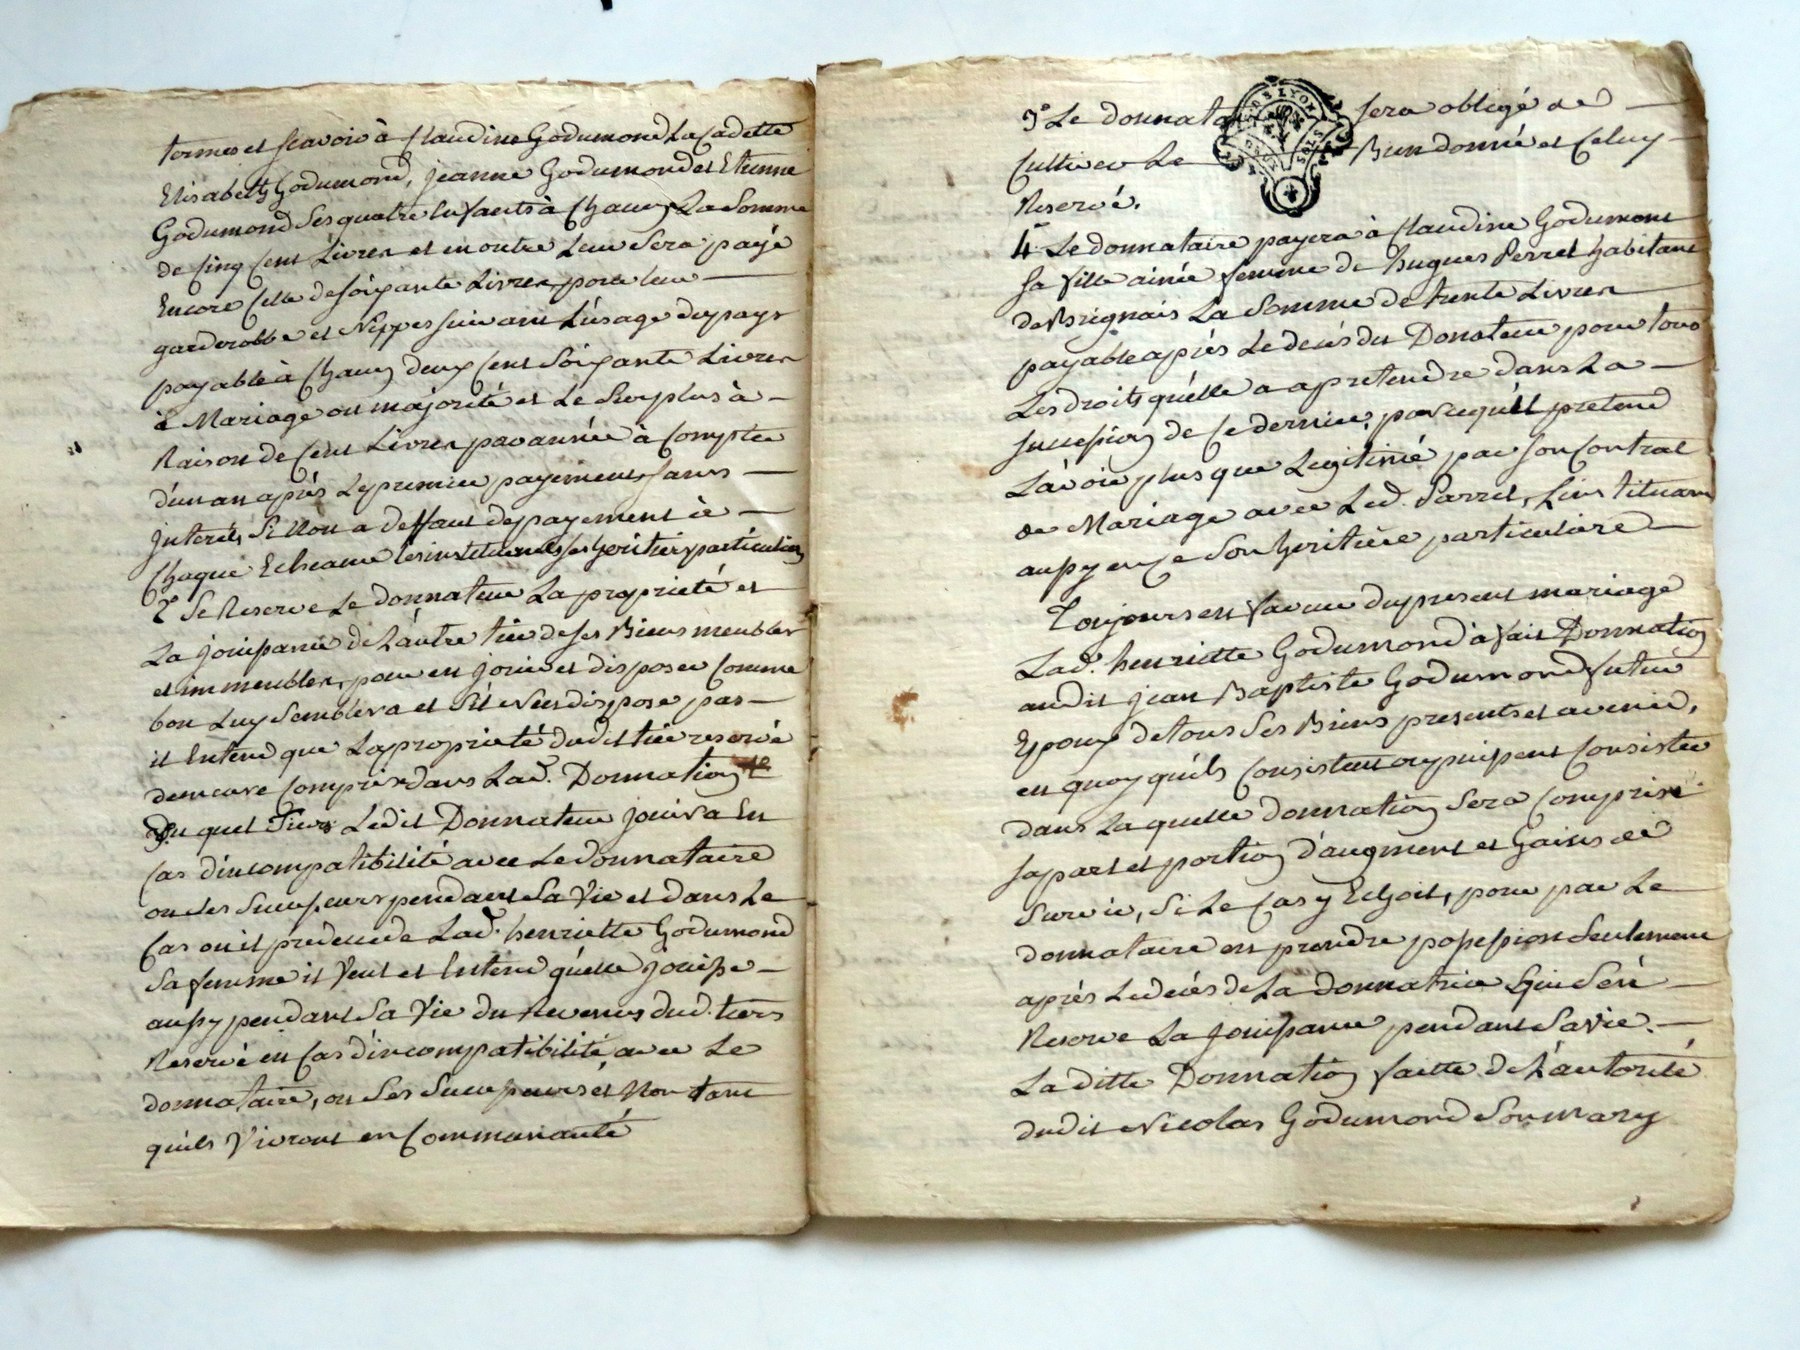 termes et scavoir à Claudine Godumond La Cadette
Elisabeth Godumond, jeanne Godumond et Etienne
Godumond Ses quatre Enfants à Chacun La Somme
de Cinq Cent Livres et en outre Leur Sera payé
Encore Celle de soixante Livres pour leur
garderobbe et Nippes suivant L'usage du pays
payable à Chacun deux Cent Soixante Livres
à Mariage ou majorité et Le Surplus à
Raison de Cent Livres par année à Compter
d'un an après Le premier payement, sans
jnterêts Si Non a deffaut de payement à
Chaque Echeance les instituant ses heritiers particuliers
2° Se Reserve Le donnateur La propriété et
La jouissance de L'autre tier de ses Biens meubles
et immeubles, pour en jouir et disposer Comme
bon Luy Semblera et S'il n'en dispose pas
il Entend que La propriété dudit tier reservé
demeure Comprise dans Lad. Donnation
Du quel Tiers Ledit Donnateur jouira En
Cas d'incompatibilité avec Le donnataire
ou Ses Successeurs pendant Sa Vie et dans Le
Cas ou il predecede Lad. henriette Godumond
Sa femme il Veut et Entend qu'elle jouisse
aussy pendant Sa Vie du Revenus dud. tiers
Reservé en Cas d'incompatibilité avec Le
donnataire, ou Ses Successeurs et Non tant
quils Vivront en Communauté
3° Le donnata sera obligé de
Cultiver Le Bien donné et Celuy
Reservé.
4° Le donnataire payera à Claudine Godumond
sa fille ainée femme de hugues Perret habitant
de Brignais La Somme de trente Livres
payable après Le decés du Donateur pour tous
Les droits qu'elle a a pretendre dans La
succession de Ce dernier, parcequ'il pretend
L'avoir plus que Legitimé par son Contrat
de Mariage avec Led. Parret, L'instituant
aussy en Ce Son heritière particulière
Toujours en faveur du present mariage
Lad. henriette Godumond à fait Donnation
audit jean Baptiste Godumond futur
Epoux de tous Ses Biens presents et avenir,
en quoy quils Consistent ou puissent Consister
dans La quelle donnation Sera Comprise
sa part et portion d'augment et Gains de
Survie, Si Le Cas y Echoit, pour par Le
donnataire en prendre possession Seulement
après Le decés de La donnatrice Qui S'en
Reserve La jouissance pendant Sa Vie.
La ditte Donnation faitte de L'autorité
dudit Nicolas Godumond Son mary